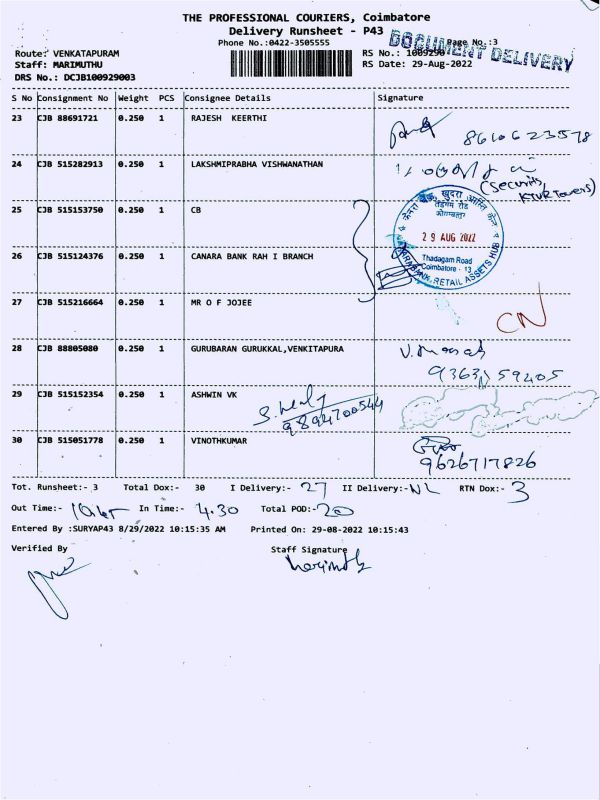 THE PROFESSIONAL COURIERS, Coimbatore
Delivery Runsheet - P43
Phone No.:0422-3505555
Page No.:3
DOCUMENT DELIVERY
Route: VENKATAPURAM
RS No.: 1009290
Staff: MARIMUTHU
RS Date: 29-Aug-2022
DRS No.: DCJB100929003
S No Consignment No Weight PCS Consignee Details Signature
23 CJB 88691721 0.250 1 RAJESH KEERTHI
8610623578
24 CJB 515282913 0.250 1 LAKSHMIPRABHA VISHWANATHAN
(Security, KTVR Towers)
25 CJB 515153750 0.250 1 CB
केनरा बैंक, खुदरा आस्ति केन्द्र
तडागम रोड
कोयम्बत्तूर
29 AUG 2022
Thadagam Road
Coimbatore - 13
CANARA BANK, RETAIL ASSETS HUB
26 CJB 515124376 0.250 1 CANARA BANK RAH I BRANCH
27 CJB 515216664 0.250 1 MR O F JOJEE
CN
28 CJB 88805080 0.250 1 GURUBARAN GURUKKAL,VENKITAPURA
9363159405
29 CJB 515152354 0.250 1 ASHWIN VK
9894700544
30 CJB 515051778 0.250 1 VINOTHKUMAR
9626717826
Tot. Runsheet:- 3 Total Dox:- 30 I Delivery:- 27 II Delivery:- NL RTN Dox:- 3
Out Time:- In Time:- 4.30 Total POD:- 20
Entered By :SURYAP43 8/29/2022 10:15:35 AM Printed On: 29-08-2022 10:15:43
Verified By Staff Signature